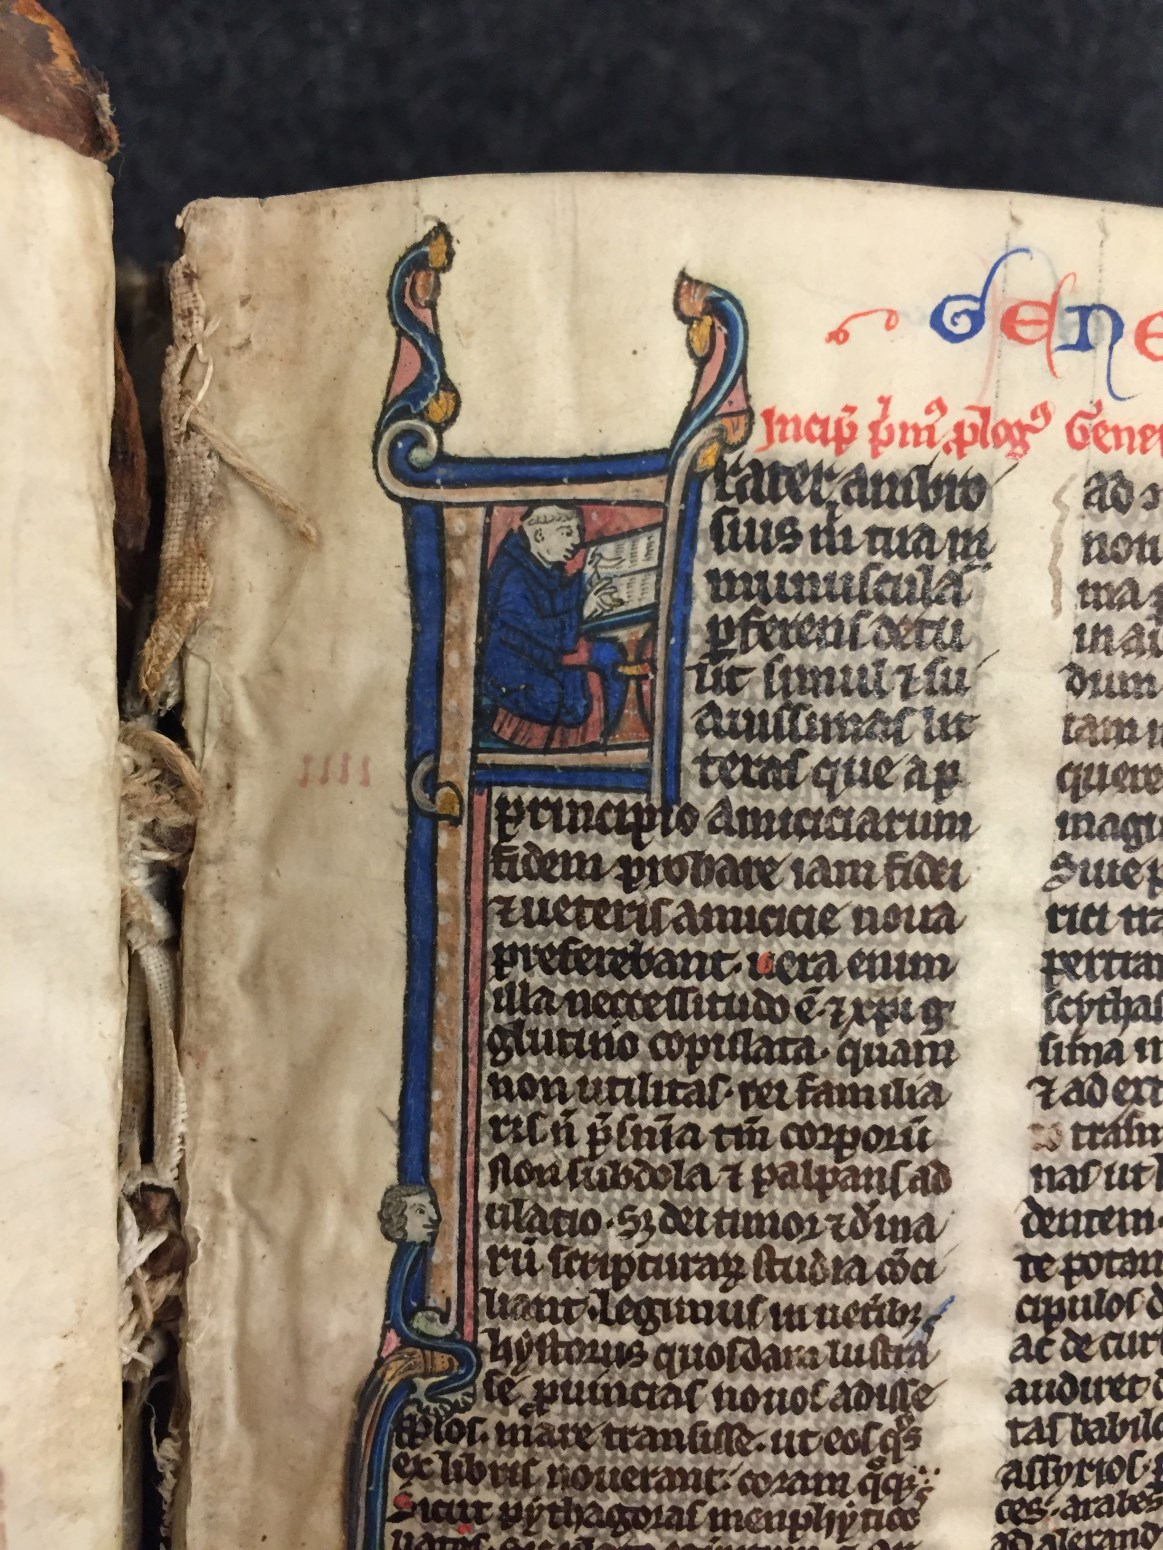 Gene
Incip̄ p̄m᷒ plog᷒ Gene
Frater ambro
sius m̄ tua m̄
munuscula
pferens detu
lit simul ⁊ su
auissimas lit
teras que a p
principio amiciciarum
fidem probare iam fidei
⁊ ueteris amicicie noua
preferebant. uera enim
illa neccessitudo ē. ⁊ xp̄i g
glutino copulata. quam
non utilitas. rei familia
ris n̄ p̄sn̄ia tm̄ corporū
non subdola ⁊ palpans ad
ulatio. sꝫ dei timor ⁊ diuina
rū scripturaꝝ studia cōci
liant. legimus in uet̄ibꝫ
hystoriis quosdam lustra
se puincias nouos adisse
pplos. mare transisse. ut eos q᷒s
ex libris nouerant. coram q̄q.
Sicut pythagoras menphyticos
uates.
ad
non
ma p
in au
dum
tam
quere
magi
Siue p
rici tra
pertran
scythas
sima
⁊ ad ext
transi
nas ut h
dentem.
te potan
cipulos d
ac de cur
audiret d
tas babilo
assyrios. p
ces. arabes
ad alexand